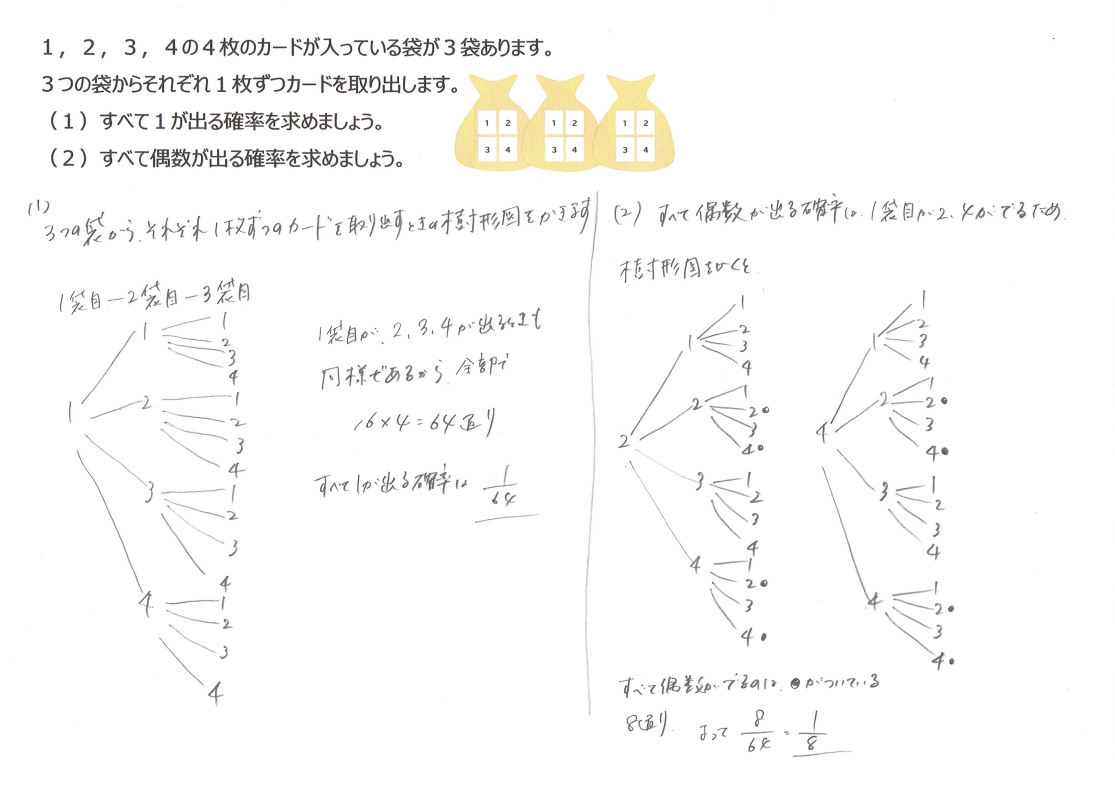 １，２，３，４の４枚のカードが入っている袋が３袋あります。
３つの袋からそれぞれ１枚ずつカードを取り出します。
（１）すべて１が出る確率を求めましょう。
（２）すべて偶数が出る確率を求めましょう。
1 2 1 2 1 2
3 4 3 4 3 4
(1)
3つの袋から、それぞれ1枚ずつのカードを取り出すときの樹形図をかきます
1袋目－2袋目－3袋目
1
1 1
2
3
4
2 1
2
3
4
3 1
2
3
4
4 1
2
3
4
1袋目が、2、3、4が出るときも
同様であるから、全部で
16×4＝64通り
すべて1が出る確率は 1/64
(2) すべて偶数が出る確率は、1袋目が2、4がでるため、
樹形図をかくと
2
1 1
2
3
4
2 1
2●
3
4●
3 1
2
3
4
4 1
2●
3
4●
4
1 1
2
3
4
2 1
2●
3
4●
3 1
2
3
4
4 1
2●
3
4●
すべて偶数がでるのは、●がついている
8通り、よって 8/64 = 1/8